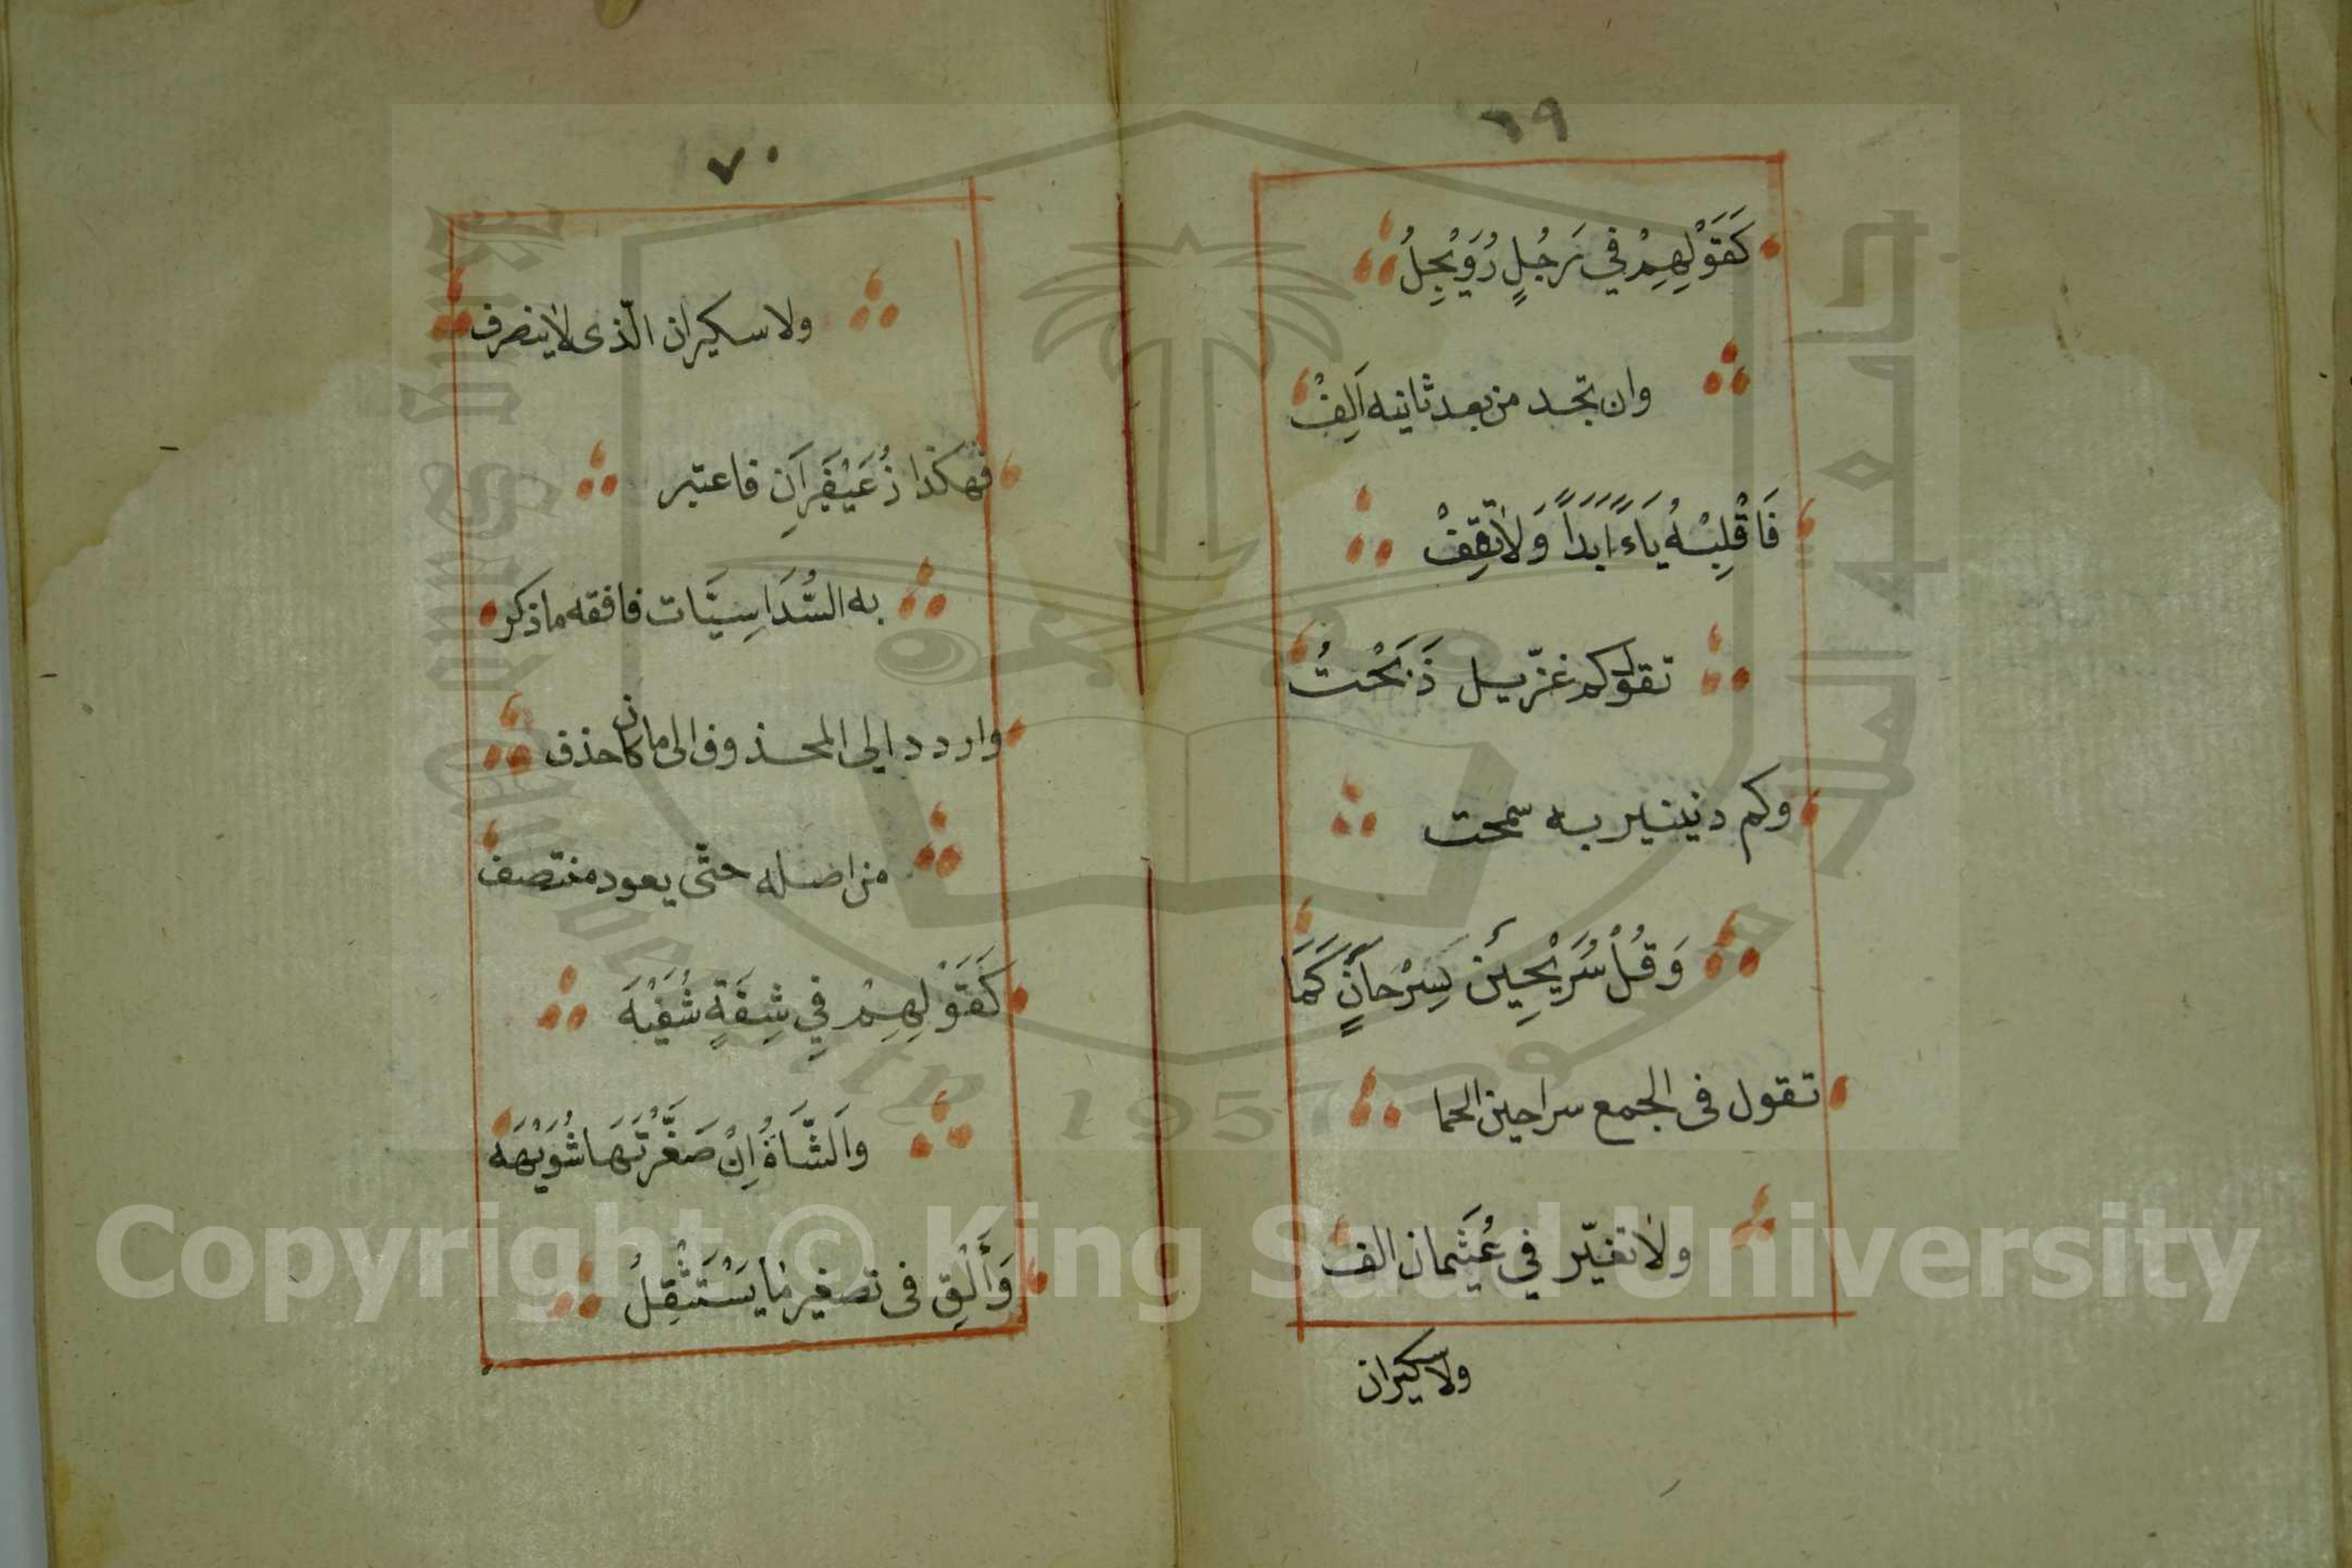 ٦٩
كَقَوْلِهِمْ فِي رَجُلٍ رُوَيْجِلُ
وان تجد من بعد ثانيه اَلِفْ
فَاقْلِبْهُ يَاءً اَبَدَاً وَلَا تَقِفْ
تقولكم غزّيل ذَبَحْتُ
وكم دنينير به سمحت
وَقُلْ سُرَيْحِينٌ بِسِرْحَانٍ كَمَا
تقول فى الجمع سراحين الحما
ولا تغيّر في عُثَيمان الف
ولا سكيران
٧٠
ولا سكيران الّذى لا ينصرف
فهكذا زُعَيْفَرَانِ فاعتبر
به السُّدَاسِيَّات فافقه ما ذكر
واردد الى المحذوف الى ما كان حذف
من اصله حتّى يعود منتصف
كَقَوْلِهِمْ فِي شِفَةٍ شُفَيْهَه
وَالشَّاةُ اِنْ صَغَّرْتَهَا شُوَيْهَه
وَأَلْقِ فى تصغير مَا يَسْتَثْقِلُ
Copyright © King Saud University
King Saud University
1957
جامعة الملك سعود